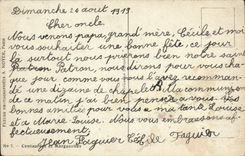 Dimanche 20 août 1919
Cher oncle,
Nous venons papa, grand mère, Cécile et moi
vous souhaiter une bonne fête, ce jour
là surtout nous prierons bien notre saint
Patron, nous dirons pour vous cha
que jour comme vous l'avez recomman
dé une dizaine de chapelet. A la communion
de ce matin j'ai bien pensé à vous
bonnes amitiés pour vous à ma tante Louise
et à Marie Louise. Nous vous embrassons af
fectueusement.
Jean Paquier Cécile Paquier